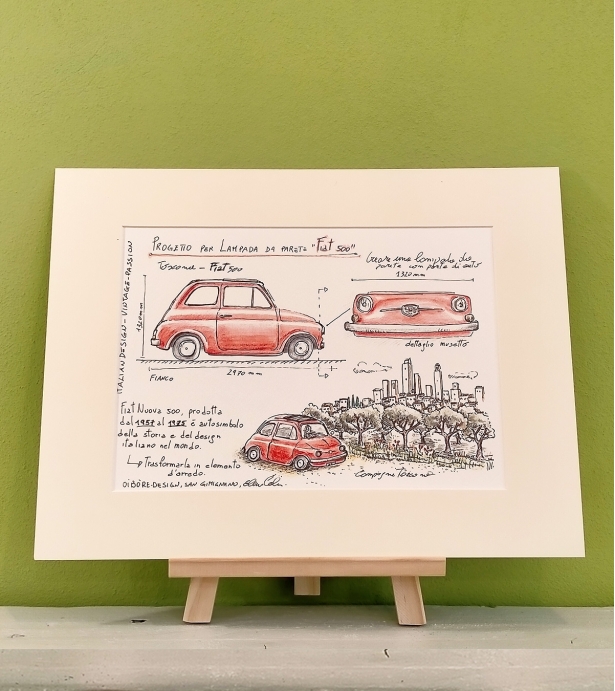 PROGETTO PER LAMPADA DA PARETE "Fiat 500"
Toscana - Fiat 500
Creare una lampada da
parete con parte di auto
1320 mm
ITALIAN DESIGN - VINTAGE - PASSION
1320 mm
dettaglio musetto
2970 mm
FIANCO
Fiat Nuova 500, prodotta
dal 1957 al 1975 è autosimbolo
della storia e del design
italiano nel mondo.
Trasformarla in elemento
d'arredo.
Campagna Toscana
OIBÒRE-DESIGN, SAN GIMIGNANO,